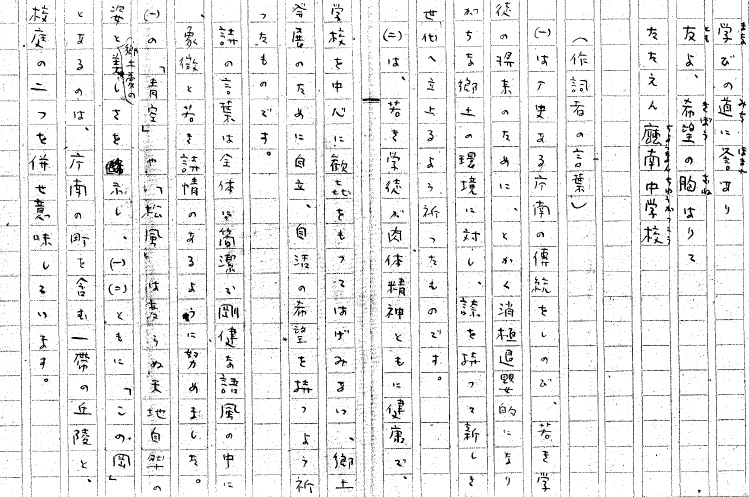 学びの道に誉あり
友よ、希望の胸はりて
たたえん廰南中学校
（作詞者の言葉）
㈠は歴史ある庁南の傳統をしのび、若き学
徒の将来のために、とかく消極退嬰的になり
がちな郷土の環境に対し、誇を持って新しき
世代へ立上るよう祈ったものです。
㈡は、若き学徒が肉体精神ともに健康で、
学校を中心に歓喜をもってはげみあい、郷土
発展のために自立、自治の希望を持つよう祈
ったものです。
詩の言葉は全体に簡潔で剛健な語風の中に
、象徴と若き詩情のあるように努めました。
㈠の「青空」や「松風」は変らぬ天地自然の
姿と（郷土愛の）美しさを示し、㈠㈡ともに「この岡」
とあるのは、庁南の町を含む一帯の丘陵と、
校庭の二つを併せ意味しています。